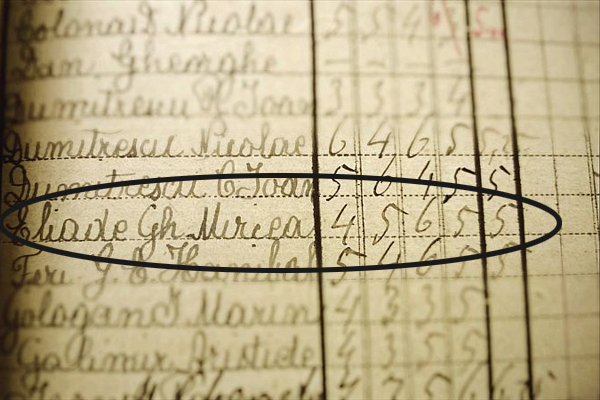 Nicolae 5 5 4
Dan Gheorghe
Dumitrescu N Ioan 3 3 3 4
Dumitrescu Nicolae 6 4 6 5 5
Dumitrescu C Ioan 5 6 4 5 5
Eliade Gh Mircea 4 5 6 5 5
Feri G. E. Hanibal 5 4 6 5 5
Gologan I Marin 4 3 3 5
Galimir Aristide 4 3 5 5